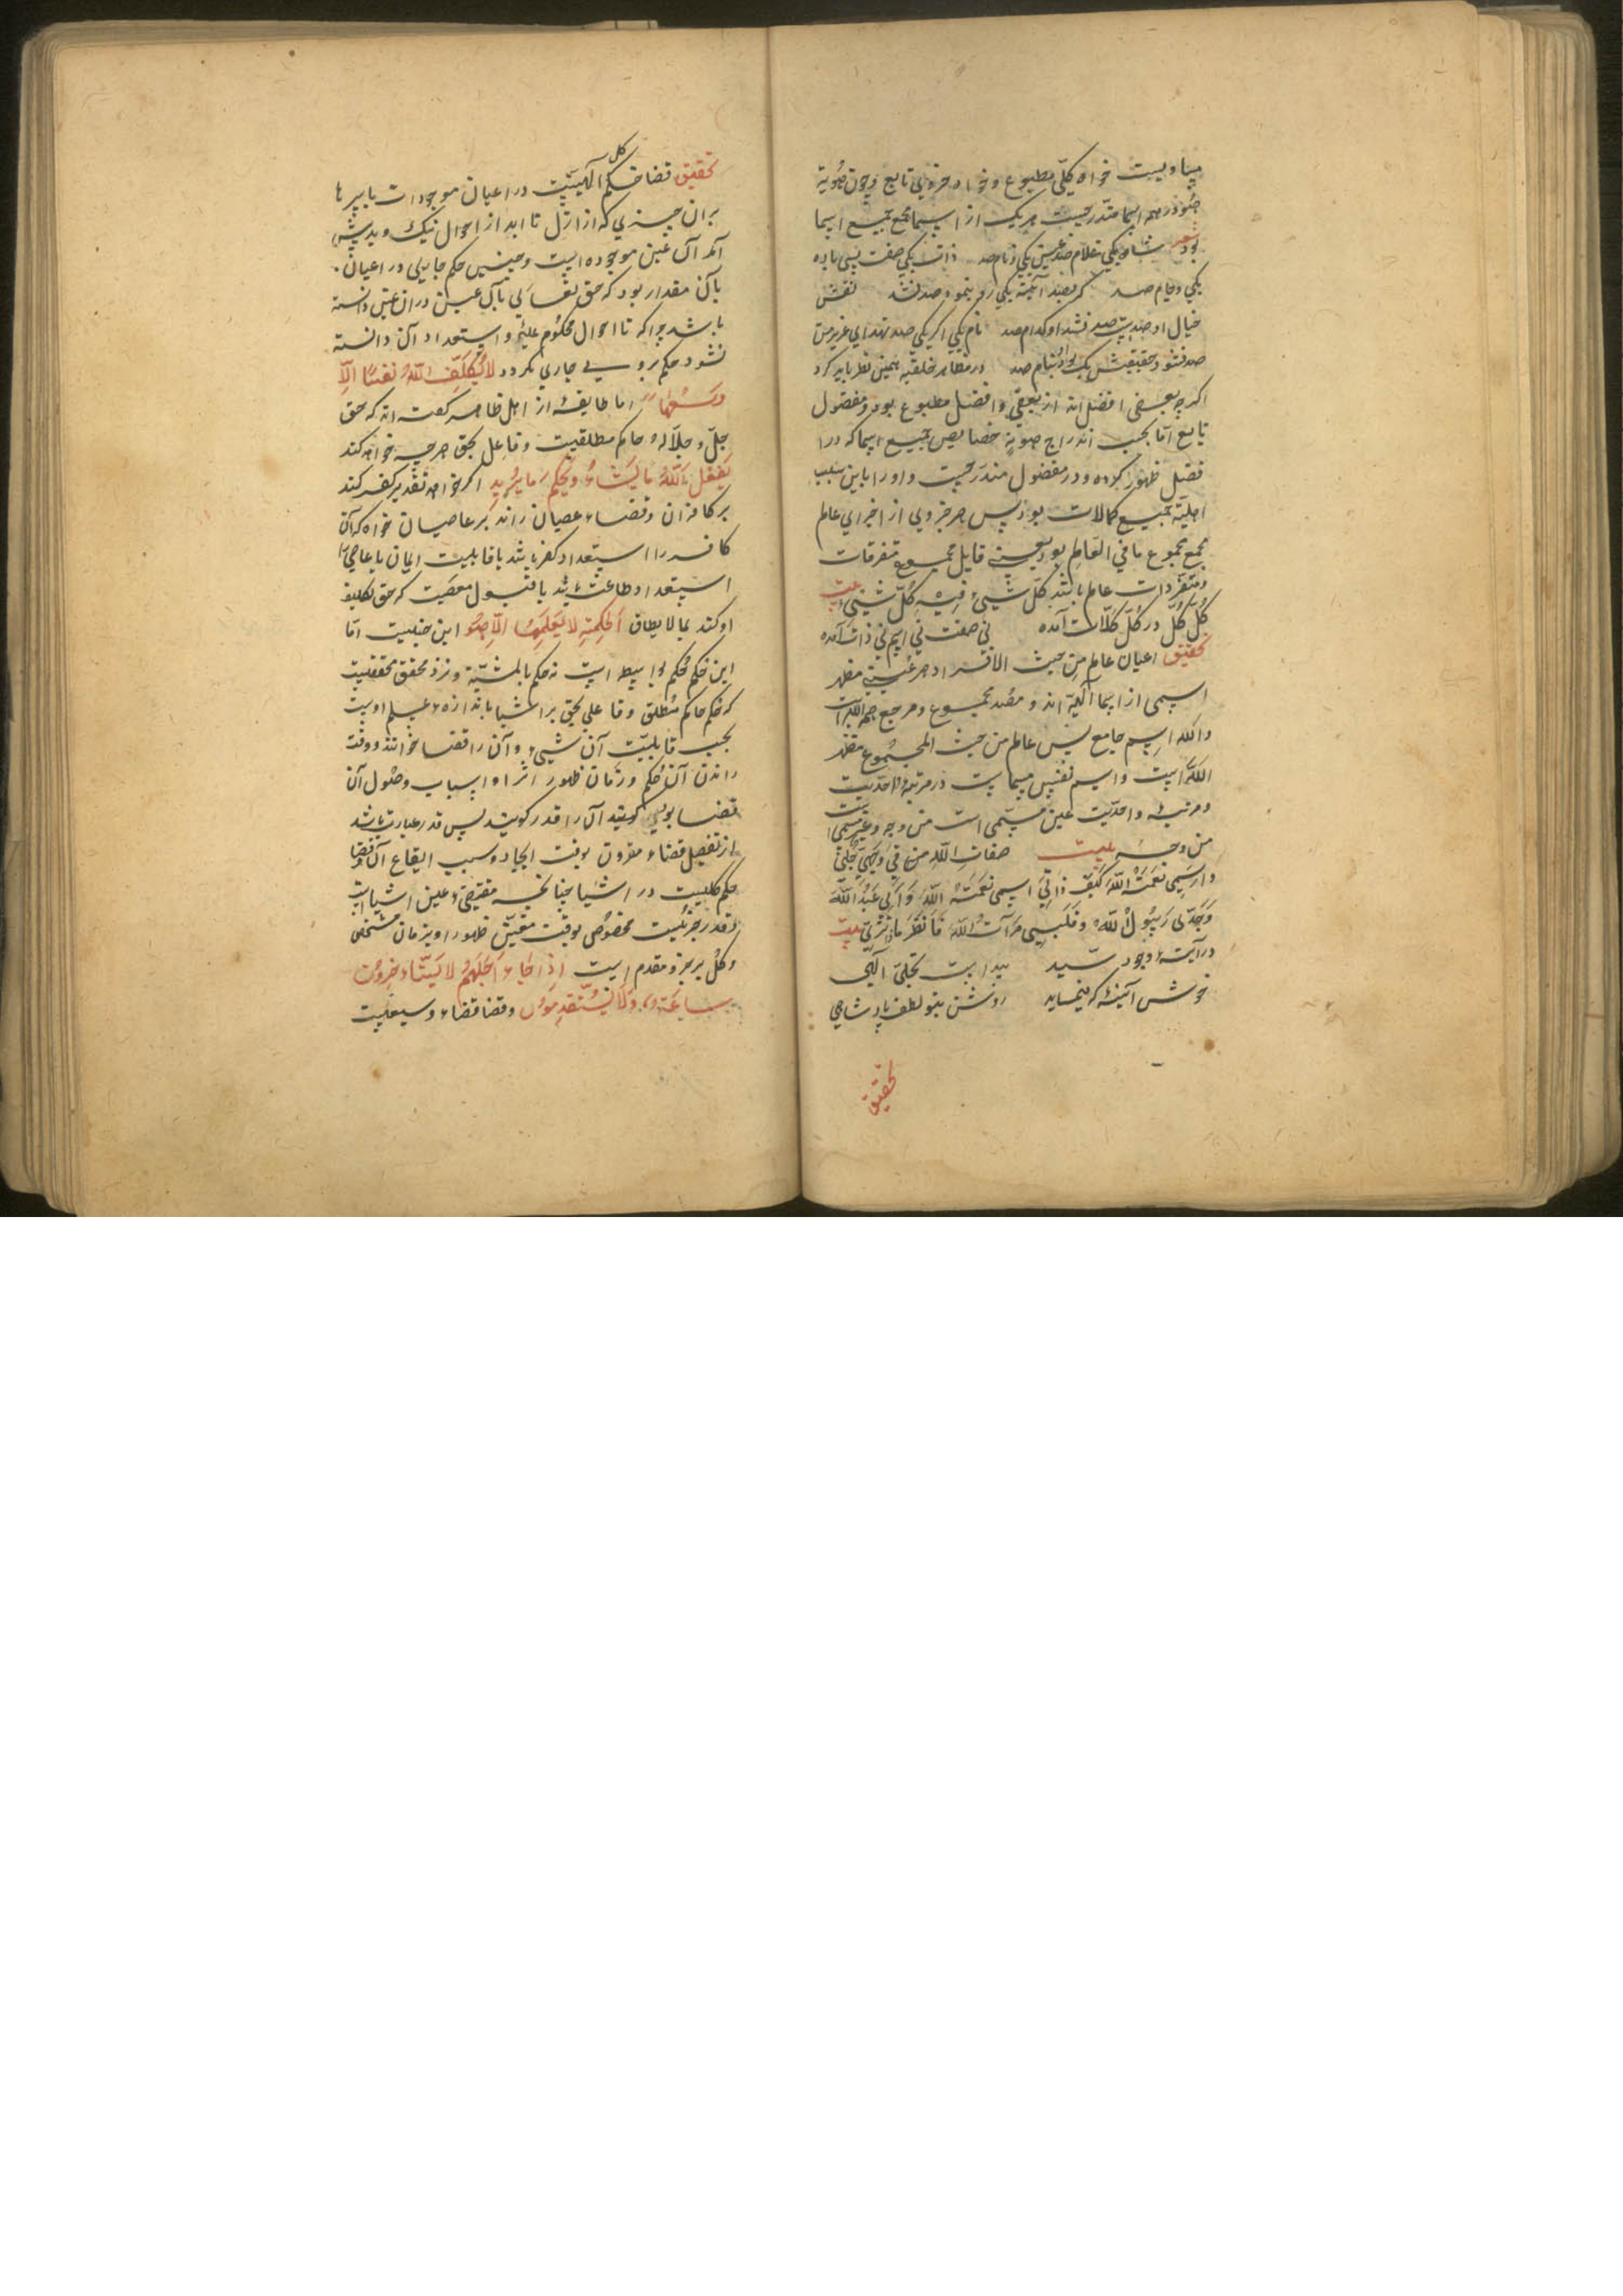 مساویست خواه کلّی مطبوع و خواه جزوی تابع و چون هویة
هو در همه اسما مندرجست هر یک از اسما مجمع جمیع اسما
بود شعر شاه یکی غلام صد عین یکی و نام صد ذات یکی صفت بسی باده
یکی و جام صد کر بصد آئینه یکی رو بنمود صد نشد نقش
خیال او صدیت صد نشد او کدام صد نام یکی اکر یکی صد نهد ای عزیز من
صد نشود حقیقتش یک بود او بنام صد در مظاهر خلقیه همین نظر باید کرد
اکرچه بعضی افضل اند از بعضی و افضل مطبوع بود و مفضول
تابع امّا بحسب اندراج هویة خصایص جمیع اسما که در ا
فضل ظهور کرده و در مفضول مندرجست و او را باین سبب
اهلیّة جمیع کمالات بود پس هر جزوی از اجزای عالم
مجمع مجموع ما فی العالم بود یعنی قابل جمیع متفرقات
و متفردات عالم باشد کلّ شیئ فیه کلّ شیئ بیت
کلّ کلّ در کلّ کلّات آمده نی صفت نی اسم نی ذات آمده
تحقیق اعیان عالم من حیث الافراد هر عینی مظهر
اسمی از اسما الهیّه اند و مصدر مجموع و مرجع همه اللّه است
و اللّه اسم جامع پس عالم من حیث المجموع مظهر
اللّه است و اسم نفس مسماست در مرتبهٔ احدیت
و مرتبهٔ واحدّیت عین مسمّی است من وجه و غیر مسمی است
من وجه بیت صفات اللّه من فی وجهی جُلّی
و اسمی نعمة اللّه کیف ذاتی اسمی نعمتة اللّه و ابی عبد اللّه
و جدّی رسول اللّه و فلبسی مرآت اللّه فانظر ماذا تری بیت
در آینهٔ وجود سیّد پیداست تجلّی الهی
خوش آینهٔ که مینماید روشن بتو لطف پادشاهی
تحقیق
تحقیق قضا حکم کلّی الهیّت در اعیان موجودات باسرها
بران چیزی که از ازل تا ابد از احوال نیک و بد پیش
آمد آن عین موجوده است و جنس حکم جاری در اعیان
بآن مقدار بود که حق تعالی بآن عین در ان عین دانسته
باشد چرا که تا احوال محکوم علیه و استعداد آن دانسته
نشود حکم بروی جاری نکردد لا یکلّف اللّه نفسًا الّا
وسعها اما طایفهٔ از اهل ظاهر کفته اند که حق
جلّ و جلاله حاکم مطلقیت و فاعل بحق هر چه خواهد کند
یفعل اللّه ما یشاء و یحکم ما یُرید اکر خواهد تقدیر کفر کند
بر کافران و قضاء عصیان راند بر عاصیان خواه که آن
کافر را استعداد کفر باشد یا قابلیت ایمان یا عاصی را
استعداد طاعت باشد یا قبول معصیت که حق تکلیف
او کند بما لا یطاق لحکمة لا یعلمها الّا هو این چنینست امّا
این حکم محکم واسطه است نه حکم بالمشیّة و نزد محقق محققیست
که حکم حاکم مُطلق و فاعل بحق بر اشیا باندازهٔ علم اوست
بحسب قابلیّت آن شیء و آن را قضا خوانند و وقت
راندن آن حُکم و زمان ظهور اثر او اسباب وصول آن
قضا بوی کویند آن را قدر کویند پس قدر عبارت باشد
از تفصیل قضاء مقرون بوقت ایجاد و سبب ایقاع آن قضا
حکم کلیست در اشیا چنانچه مقتضی عین اشیا است
و قدر جزئیست مخصوص بوقت معیّن ظهور او بزمان مشخص
و کل بر جزو مقدم است اذا جاء اجلهم لا یستاخرون
ساعة و لا یستقدمون و قضا قضاء و سیعلیت